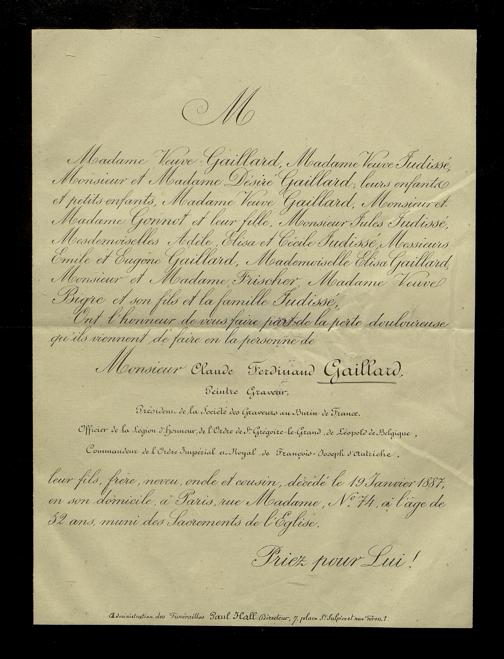 M
Madame Veuve Gaillard, Madame Veuve Judissé,
Monsieur et Madame Désiré Gaillard, leurs enfants
et petits enfants, Madame Veuve Gaillard, Monsieur et
Madame Gonnot et leur fille, Monsieur Jules Judissé,
Mesdemoiselles Adèle, Elisa et Cécile Judissé, Messieurs
Emile et Eugène Gaillard, Mademoiselle Elisa Gaillard,
Monsieur et Madame Frischer, Madame Veuve
Bigre et son fils et la famille Judissé,
Ont l'honneur de vous faire part de la perte douloureuse
qu'ils viennent de faire en la personne de
Monsieur Claude Ferdinand Gaillard.
Peintre Graveur.
Président de la Société des Graveurs au Burin de France.
Officier de la Légion d'Honneur, de l'Ordre de St Grégoire-le-Grand, de Léopold de Belgique,
Commandeur de l'Ordre Impérial et Royal de François-Joseph d'Autriche,
leur fils, frère, neveu, oncle et cousin, décédé le 19 Janvier 1887,
en son domicile, à Paris, rue Madame, No. 74, à l'âge de
52 ans, muni des Sacrements de l'Eglise.
Priez pour Lui!
Administration des Funérailles Paul Hall Directeur, 7, place St Sulpice et rue